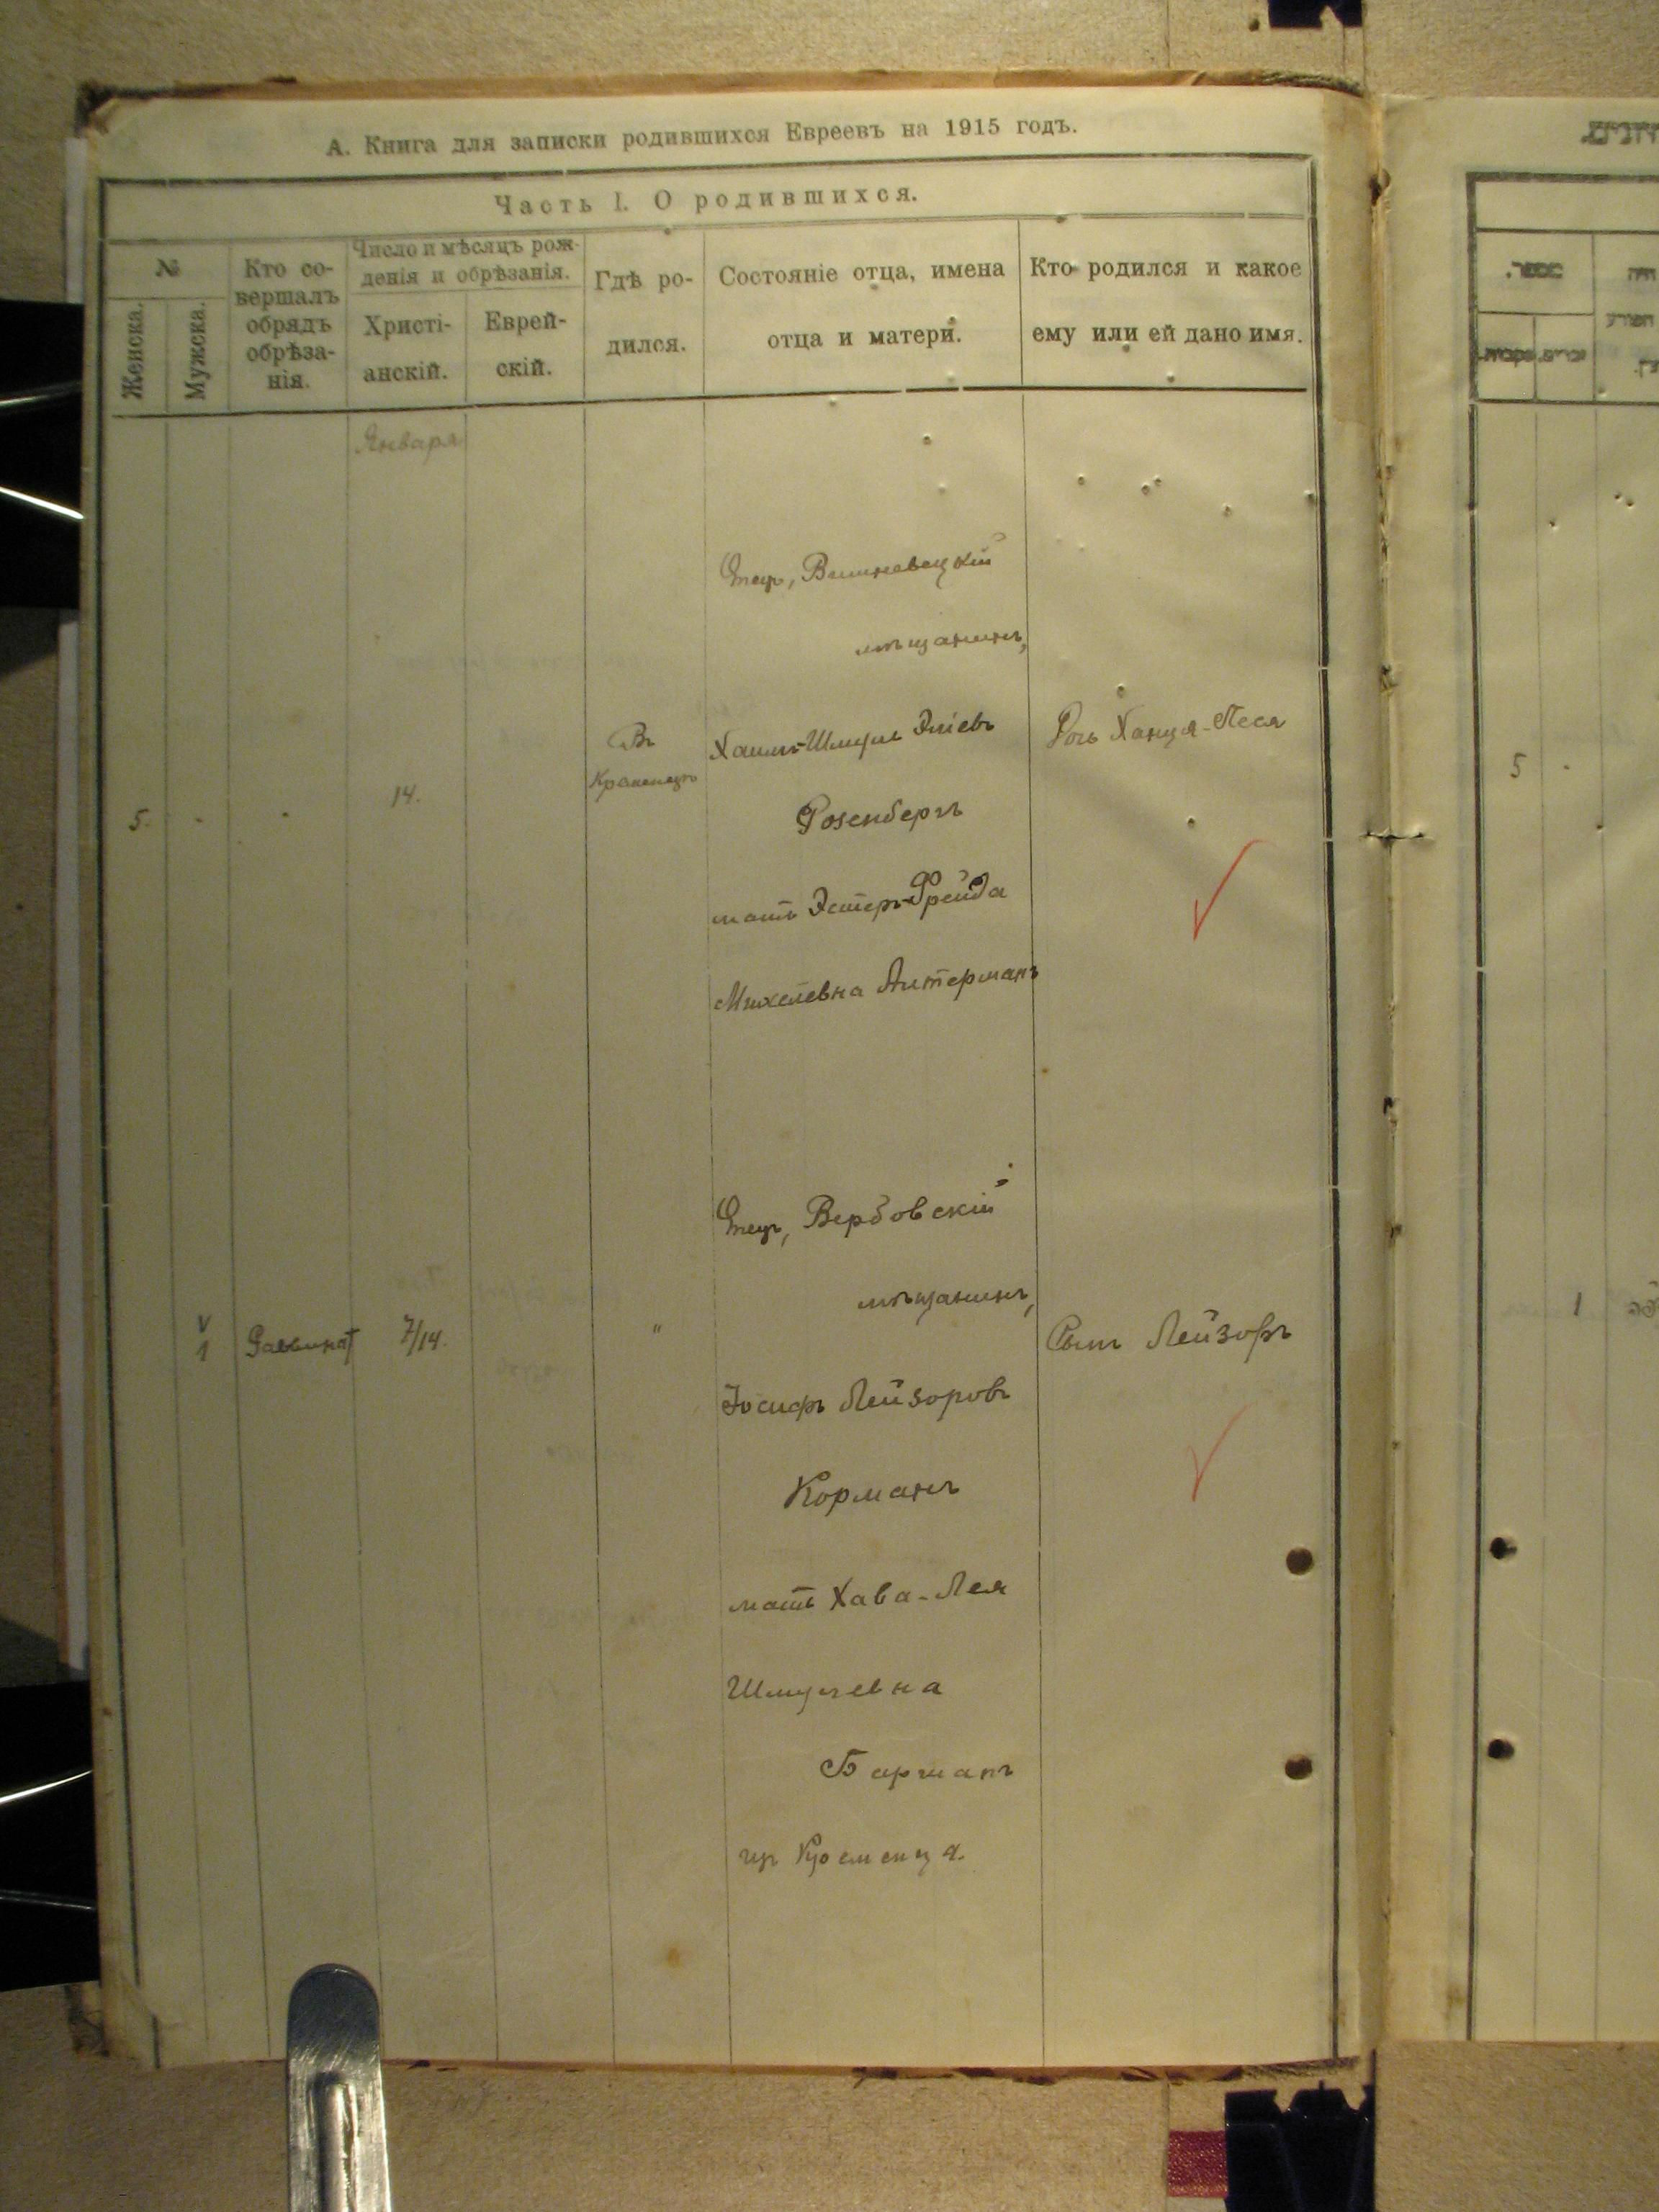 А. Книга для записки родившихся Евреевъ на 1915 годъ.
Часть I. О родившихся.
№
Женска.
Мужска.
Кто со-
вершалъ
обрядъ
обрѣза-
нія.
Число и мѣсяцъ рож-
денія и обрѣзанія.
Христі-
анскій.
Еврей-
скій.
Гдѣ ро-
дился.
Состояніе отца, имена
отца и матери.
Кто родился и какое
ему или ей дано имя.
Января
Отецъ, Вишневецкій
мѣщанинъ,
5.
-
-
14.
Въ
Кременецѣ
Хаимъ-Шмуль Эліевъ
Розенбергъ
мать Эстеръ-Фрейда
Михелевна Антерманъ
Дочь Ханця-Песя
Отецъ, Вербовскій
мѣщанинъ,
V
1
Раввинатъ
7/14.
"
Іосифъ Лейзоровъ
Корманъ
мать Хава-Лея
Шмулевна
Барманъ
гр. Кременца.
Сынъ Лейзоръ
5 -
1